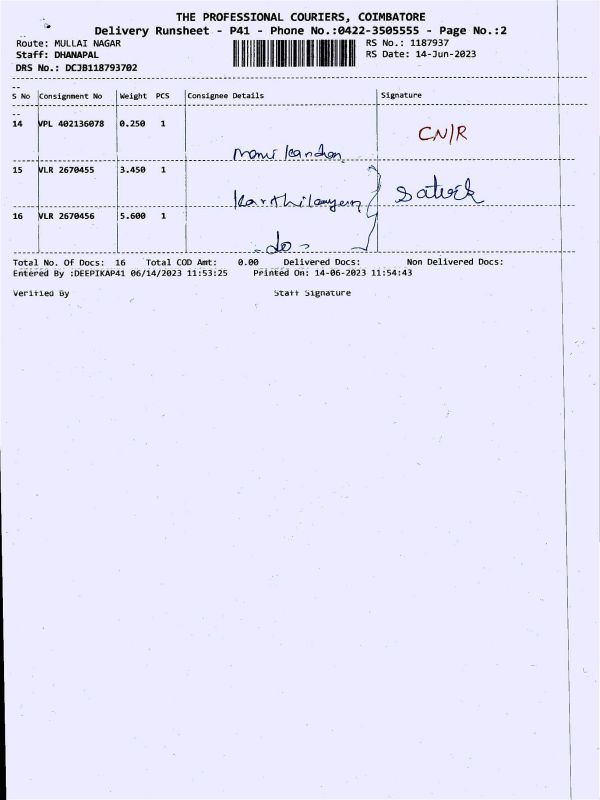 THE PROFESSIONAL COURIERS, COIMBATORE
Delivery Runsheet - P41 - Phone No.:0422-3505555 - Page No.:2
Route: MULLAI NAGAR RS No.: 1187937
Staff: DHANAPAL RS Date: 14-Jun-2023
DRS No.: DCJB118793702
S No Consignment No Weight PCS Consignee Details Signature
14 VPL 402136078 0.250 1 CN/R
mani kandan
15 VLR 2670455 3.450 1
16 VLR 2670456 5.600 1
- do -
Total No. Of Docs: 16 Total COD Amt: 0.00 Delivered Docs: Non Delivered Docs:
Entered By :DEEPIKAP41 06/14/2023 11:53:25 Printed On: 14-06-2023 11:54:43
Verified By Staff Signature